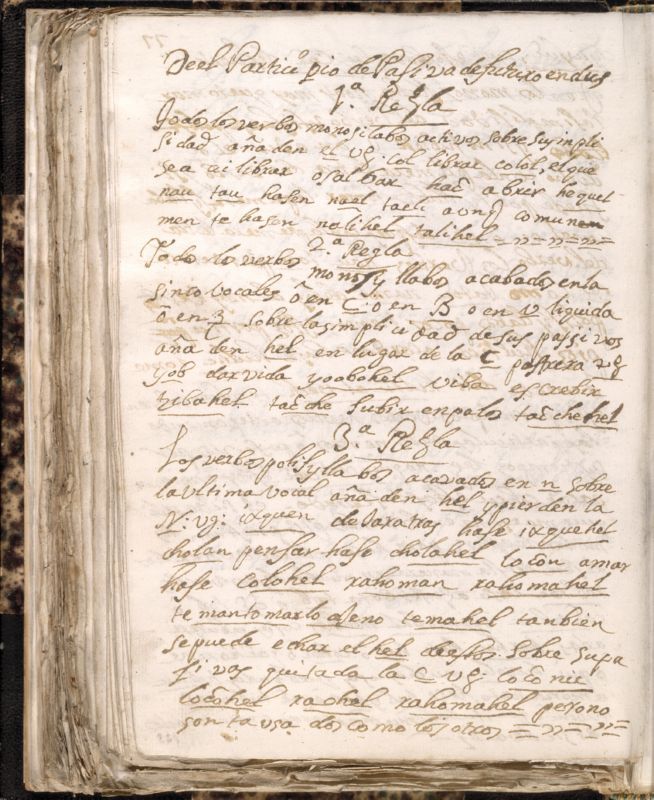 De el Participio de Pasiva de futuro en dus
1.ª Regla
Todos los verbos monosilabos activos sobre su simpli
sidad añaden el vg. col librar colol, el que
sea ai librar o salbar hac abrir he quel
nau tau hasen nael taeli aunq comun
men te hasen nalihel talihel = n = n = n =
2.ª Regla
Todo lo verbos monosyllabos acabados en la
sinto vocales ô en C ô en B o en v liquida
ô en З sobre la simplicidad de sus passivos
añaden hel en lugar de la C postrera vg
yob dar vida yoobohel viba escrebir
vibahel tacche subir en palos tacchehel
3.ª Regla
Los verbos polisyllabos acavados en n sobre
la ultima vocal añaden hel y pierden la
N: vg: ixquen dexar atras hase ixquehel
cholan pensar hase cholahel locon amar
hase colohel rahoman rahomahel
te man tomar lo ageno temahel tanbien
se puede echar el hel de estos sobre su pa
sivos quitada la C vg locônic
locôhel rachel rahomahel pero no
son ta usados como los otros = n = n =